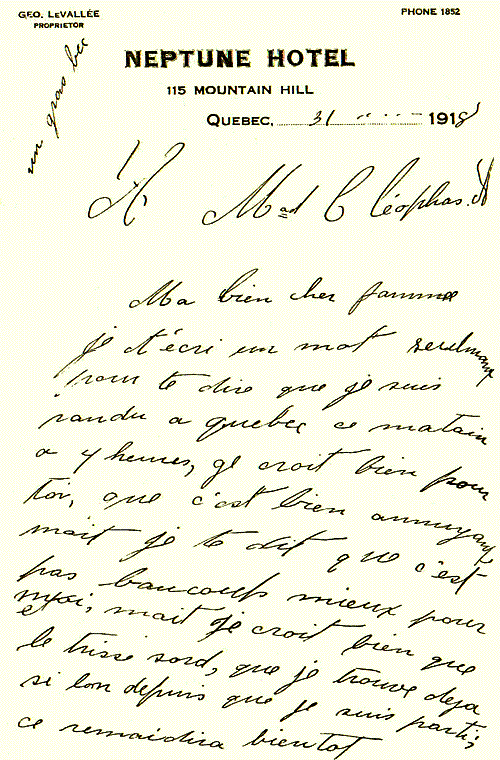 GEO. LEVALLÉE
PROPRIETOR
PHONE 1852
un gras bec
NEPTUNE HOTEL
115 MOUNTAIN HILL
QUEBEC, 31 1918
A Mad Cléophas
Ma bien cher famme
je t'écri un mot seulmant
pour te dire que je suis
randu a quebec ce matain
a 4 heures, je croit bien pour
toi, que c'est bien annuyant
mait je te dit que c'est
pas baucoups mieux pour
moi, mait je croit bien que
et
le trisse sord, que je trouve deja
si lon depuis que je suis parti,
ce remaidira bientot